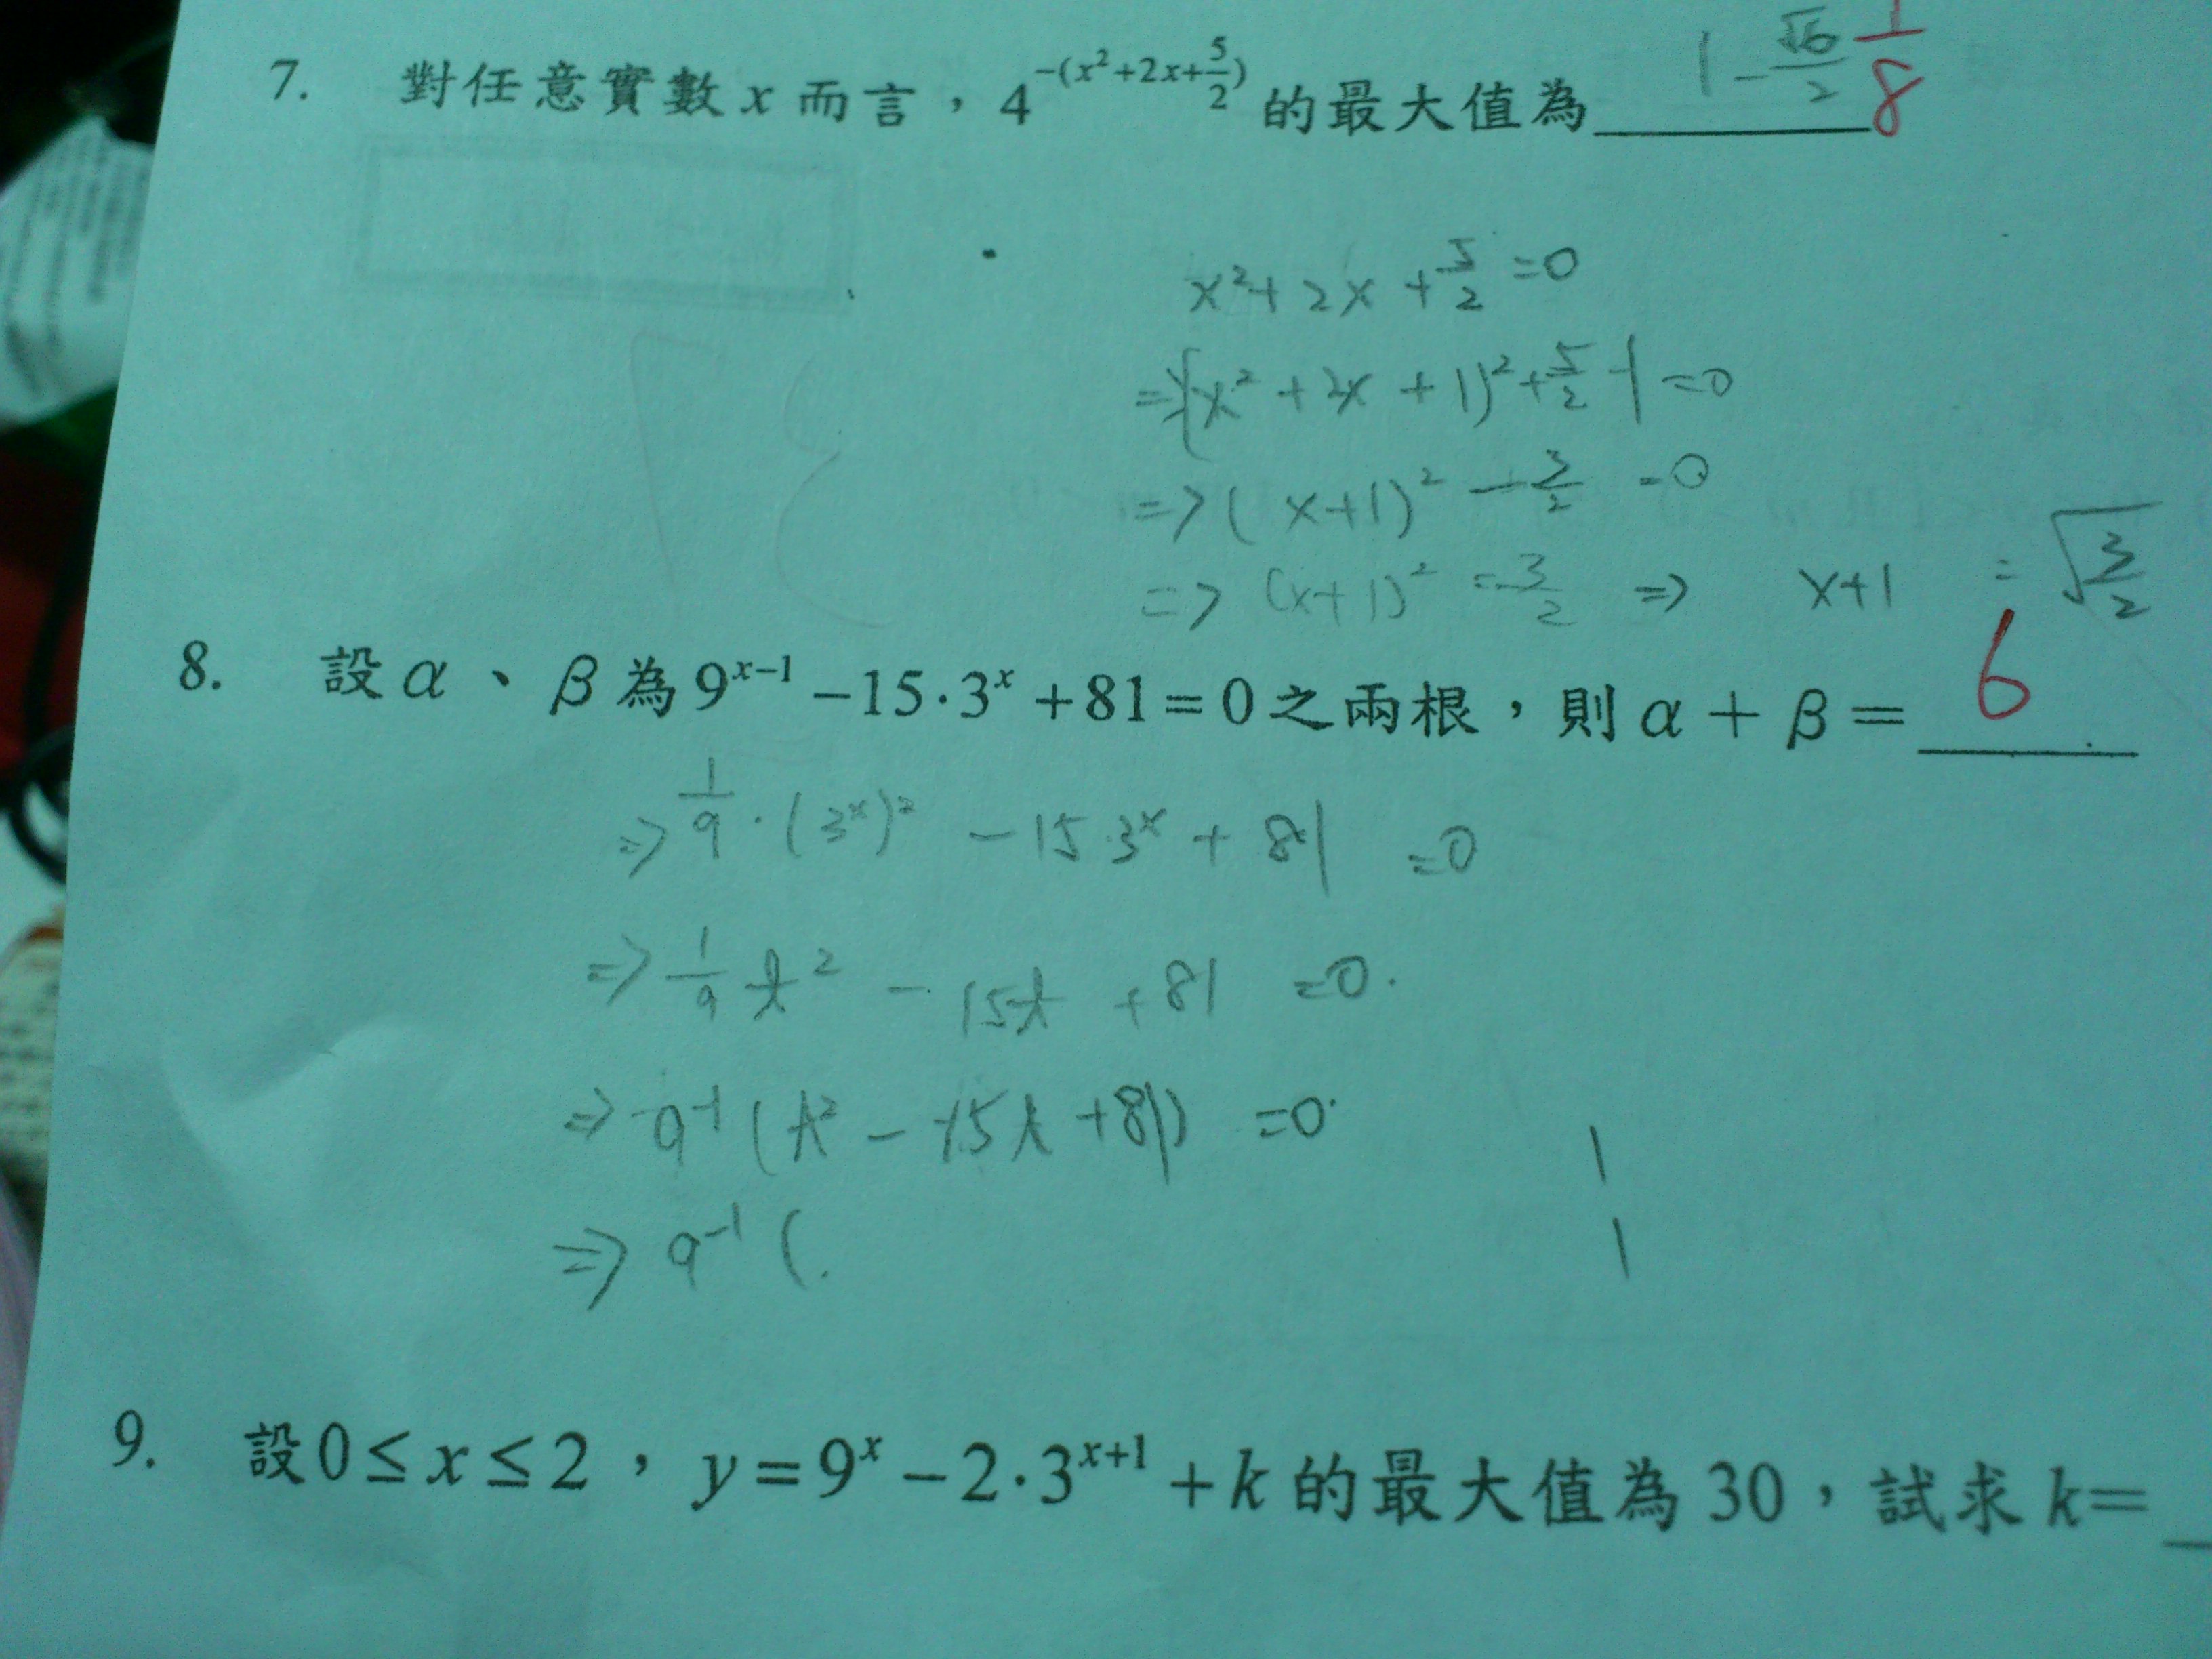 7. 對任意實數 x 而言，4^{-(x²+2x+5/2)} 的最大值為 1-√6/2 1/8
x²+2x+5/2=0
=>(x²+2x+1)²+5/2-1=0
=>(x+1)²-3/2=0
=>(x+1)²=3/2 => x+1=√(3/2)
8. 設α、β為9^{x-1}-15·3^x+81=0之兩根，則α+β= 6
=>1/9·(3^x)²-15·3^x+81=0
=>1/9t²-15t+81=0.
=>9^{-1}(t²-15t+81)=0.
=>9^{-1}(.
9. 設0≤x≤2，y=9^x-2·3^{x+1}+k的最大值為30，試求k=